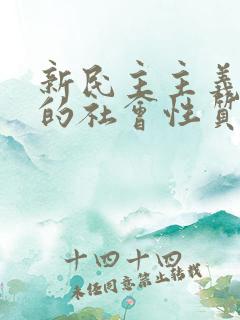 新民主主义
的社会性质
十四十四
未经同意禁止转载